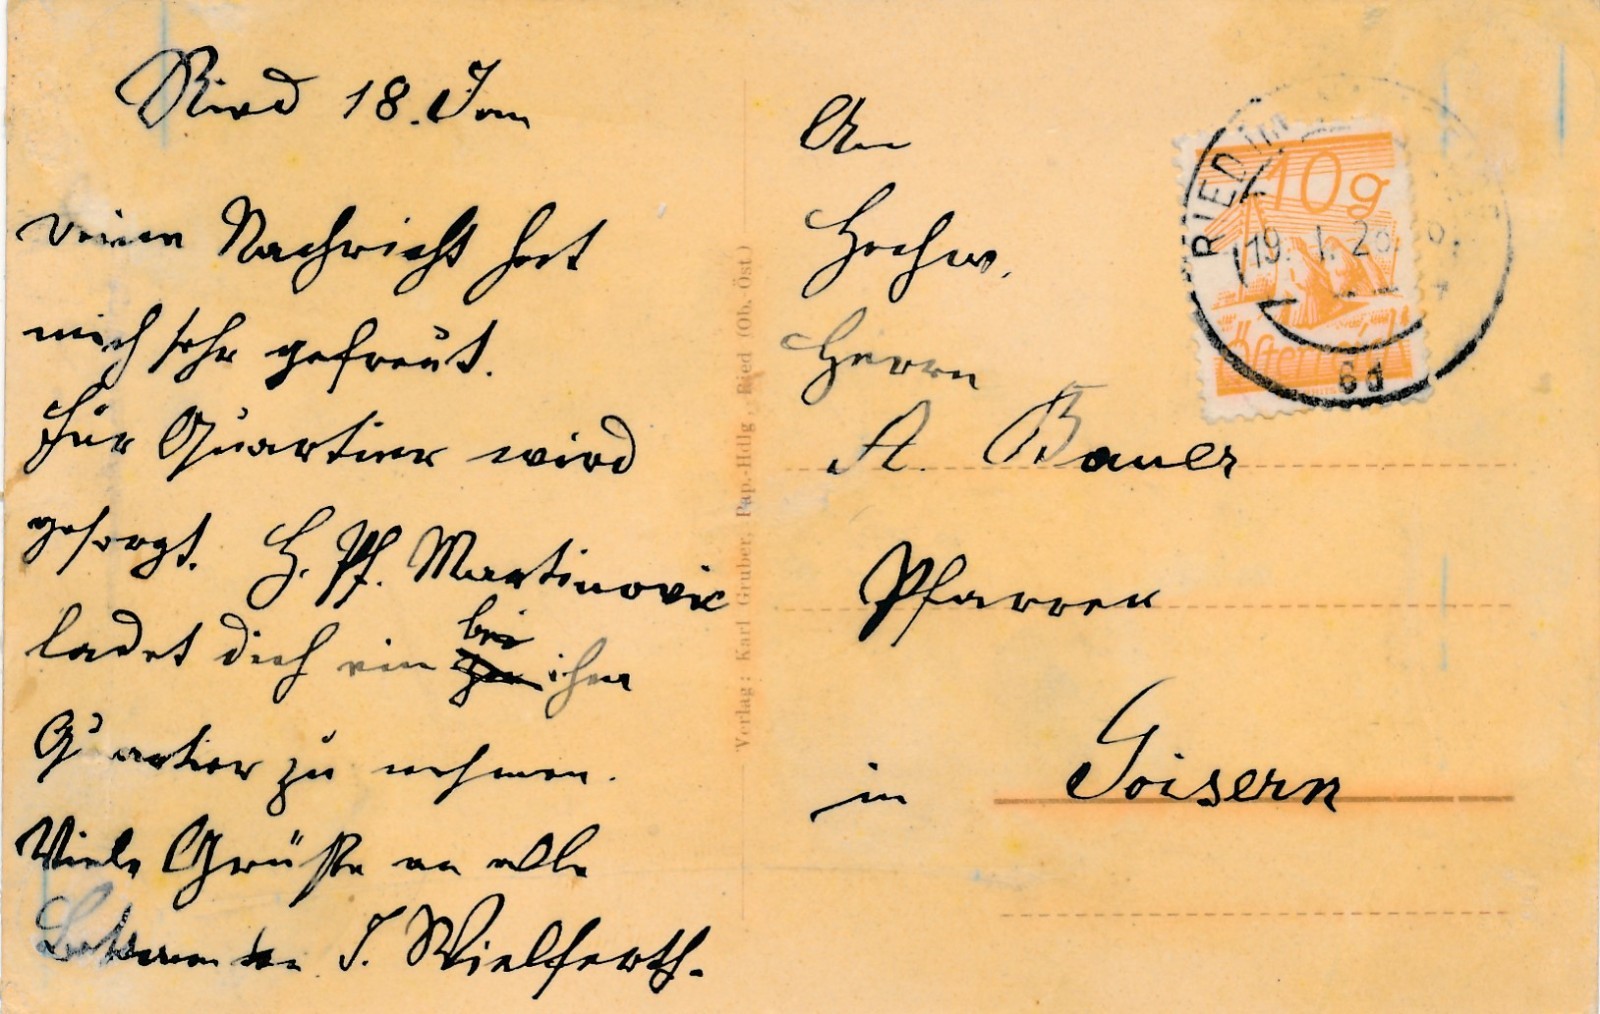 Ried 18. Jan
Deine Nachricht hat
mich sehr gefreut.
Für Quartier wird
gesorgt. H. Pf. Martinovic
ladet dich ein bei ihm
Quartier zu nehmen.
Viele Grüße an alle
Bekannten J. Wielferth.
An
Hochw.
Herrn
A. Bauer
Pfarrer
in Goisern
Verlag: Karl Gruber, Pap.-Hdlg., Ried (Ob.-Öst.)
10g
Österreich
RIED IM
19. I. 26
6d